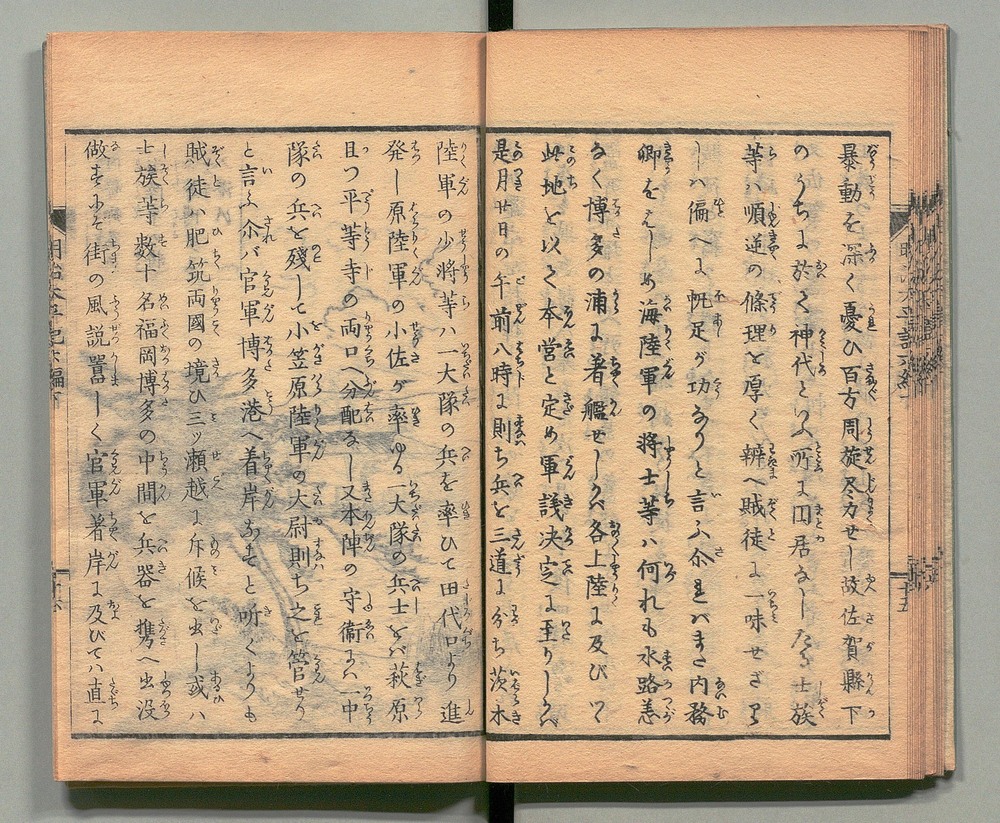 暴動を深く憂ひ百方周旋尽力せし故佐賀縣下
のうちに於て神代といふ所に団居なしたる士族
等ハ順逆の條理を厚く辨へ賊徒に一味せざり
しハ偏へに帆足が功なりと言ふ尒るにまた内務
卿をはじめ海陸軍の将士等ハ何れも水路恙
なく博多の浦に着艦せしかバ各上陸に及びて
此地を以て本営と定め軍議決定に至りしかバ
是月廿日の午前八時に則ち兵を三道に分ち茨木
陸軍の少将等ハ一大隊の兵を率ひて田代口より進
発し原陸軍の小佐が率ゆる一大隊の兵士をバ萩原
且つ平等寺の両口へ分配なし又本陣の守衞にハ一中
隊の兵を残して小笠原陸軍の大尉則ち之を管せり
と言ふ尒バ官軍博多港へ着岸なすと听くよりも
賊徒ハ肥筑両國の境ひ三ツ瀬越に斥候を出し或ハ
士族等数十名福岡博多の中間を兵器を携へ出没
做すなど街の風説囂しく官軍着岸に及びてハ直に
明治太平記六編下